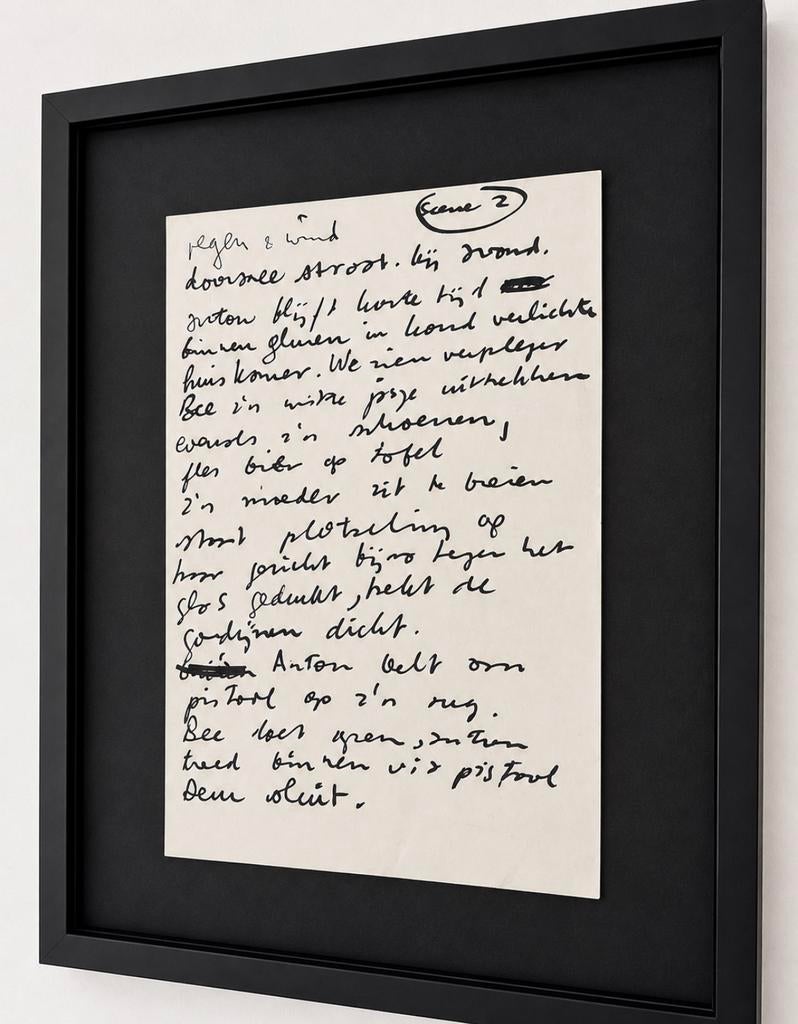 scene 2
regen & wind
doorsnee straat. bij avond.
anton blijft korte tijd
binnen gluren in rond verlichte
huiskamer. We zien verpleger
Bee z'n witte jasje uittrekken
evenals z'n schoenen,
fles bier op tafel
z'n moeder zit te breien
staat plotseling op
haar gezicht bijna tegen het
glas gedrukt, trekt de
gordijnen dicht.
Anton belt aan
pistool op z'n rug.
Bee doet open, anton
treed binnen via pistool
Deur sluit.